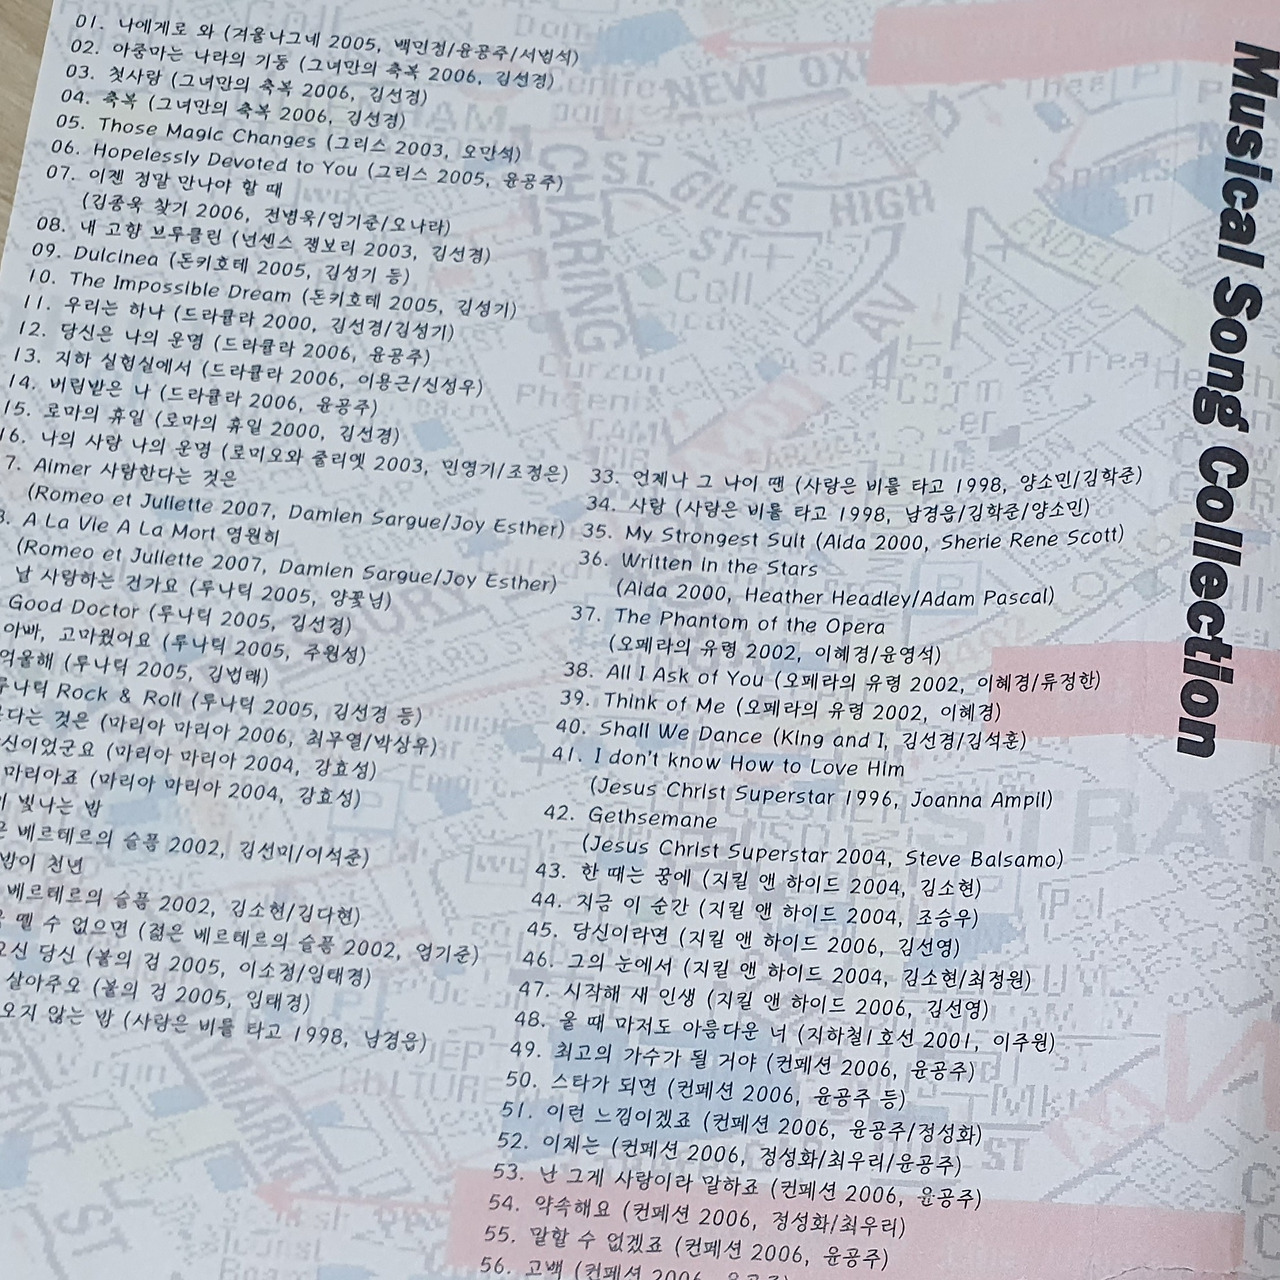 Musical Song Collection
01. 나에게로 와 (겨울나그네 2005, 백민정/윤공주/서범석)
02. 아줌마는 나라의 기둥 (그녀만의 축복 2006, 김선경)
03. 첫사랑 (그녀만의 축복 2006, 김선경)
04. 축복 (그녀만의 축복 2006, 김선경)
05. Those Magic Changes (그리스 2003, 오만석)
06. Hopelessly Devoted to You (그리스 2005, 윤공주)
07. 이젠 정말 만나야 할 때
(김종욱 찾기 2006, 전병욱/엄기준/오나라)
08. 내 고향 브루클린 (넌센스 잼보리 2003, 김선경)
09. Dulcinea (돈키호테 2005, 김성기 등)
10. The Impossible Dream (돈키호테 2005, 김성기)
11. 우리는 하나 (드라큘라 2000, 김선경/김성기)
12. 당신은 나의 운명 (드라큘라 2006, 윤공주)
13. 지하 실험실에서 (드라큘라 2006, 이용근/신성우)
14. 버림받은 나 (드라큘라 2006, 윤공주)
15. 로마의 휴일 (로마의 휴일 2000, 김선경)
16. 나의 사랑 나의 운명 (로미오와 줄리엣 2003, 민영기/조정은)
7. Aimer 사랑한다는 것은
(Romeo et Juliette 2007, Damien Sargue/Joy Esther)
8. A La Vie A La Mort 영원히
(Romeo et Juliette 2007, Damien Sargue/Joy Esther)
날 사랑하는 건가요 (루나틱 2005, 양꽃님)
Good Doctor (루나틱 2005, 김선경)
아빠, 고마웠어요 (루나틱 2005, 주원성)
억울해 (루나틱 2005, 김법래)
루나틱 Rock & Roll (루나틱 2005, 김선경 등)
다는 것은 (마리아 마리아 2006, 최무열/박상우)
신이었군요 (마리아 마리아 2004, 강효성)
마리아죠 (마리아 마리아 2004, 강효성)
빛나는 밤
베르테르의 슬픔 2002, 김선미/이석준)
밤이 천년
베르테르의 슬픔 2002, 김소현/김다현)
뗄 수 없으면 (젊은 베르테르의 슬픔 2002, 엄기준)
오신 당신 (불의 검 2005, 이소정/임태경)
살아주오 (불의 검 2005, 임태경)
오지 않는 밤 (사랑은 비를 타고 1998, 남경읍)
33. 언제나 그 나이 땐 (사랑은 비를 타고 1998, 양소민/김학준)
34. 사랑 (사랑은 비를 타고 1998, 남경읍/김학준/양소민)
35. My Strongest Suit (Aida 2000, Sherie Rene Scott)
36. Written in the Stars
(Aida 2000, Heather Headley/Adam Pascal)
37. The Phantom of the Opera
(오페라의 유령 2002, 이혜경/윤영석)
38. All I Ask of You (오페라의 유령 2002, 이혜경/류정한)
39. Think of Me (오페라의 유령 2002, 이혜경)
40. Shall We Dance (King and I, 김선경/김석훈)
41. I don't know How to Love Him
(Jesus Christ Superstar 1996, Joanna Ampil)
42. Gethsemane
(Jesus Christ Superstar 2004, Steve Balsamo)
43. 한 때는 꿈에 (지킬 앤 하이드 2004, 김소현)
44. 지금 이 순간 (지킬 앤 하이드 2004, 조승우)
45. 당신이라면 (지킬 앤 하이드 2006, 김선영)
46. 그의 눈에서 (지킬 앤 하이드 2004, 김소현/최정원)
47. 시작해 새 인생 (지킬 앤 하이드 2006, 김선영)
48. 울 때 마저도 아름다운 너 (지하철1호선 2001, 이주원)
49. 최고의 가수가 될 거야 (컨페션 2006, 윤공주)
50. 스타가 되면 (컨페션 2006, 윤공주 등)
51. 이런 느낌이겠죠 (컨페션 2006, 윤공주/정성화)
52. 이제는 (컨페션 2006, 정성화/최우리/윤공주)
53. 난 그게 사랑이라 말하죠 (컨페션 2006, 윤공주)
54. 약속해요 (컨페션 2006, 정성화/최우리)
55. 말할 수 없겠죠 (컨페션 2006, 윤공주)
56. 고백 (컨페션 2006, 윤공주)
NEW OX
ST GILES HIGH
CHARING
Curzon
Phoenix
ENDELL
NEAL